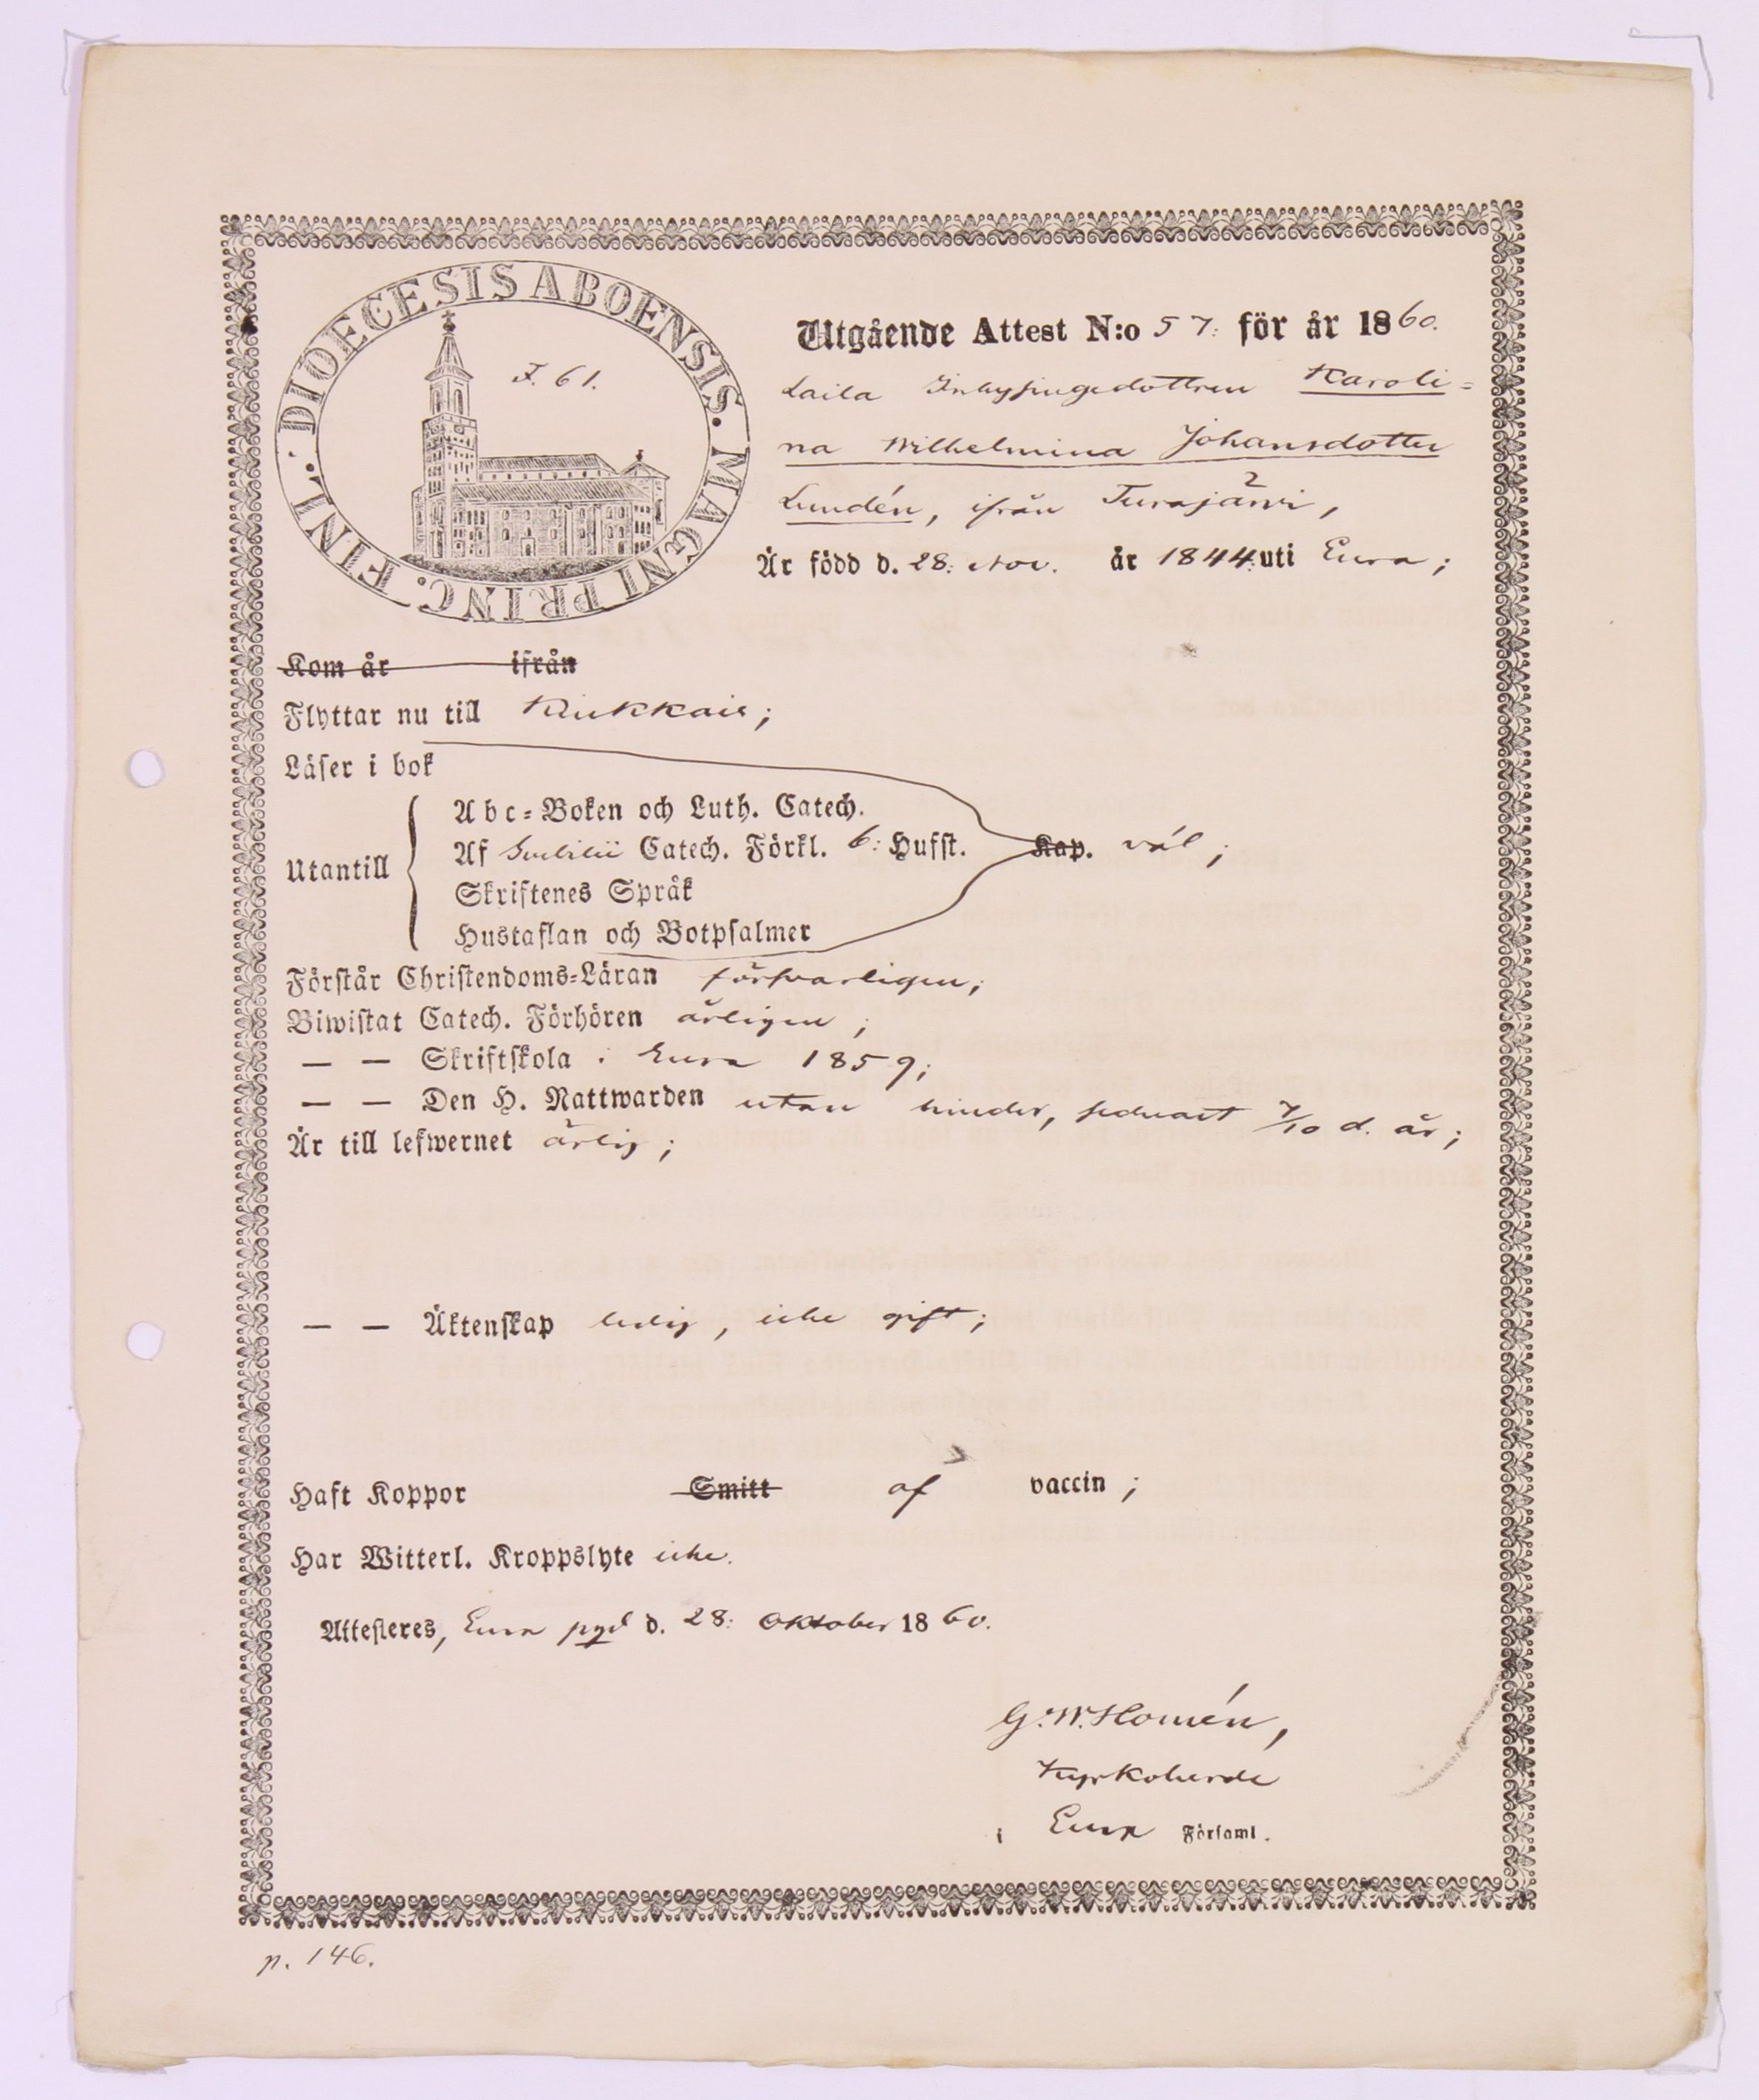 DIOECESIS ABOENSIS. MAGNI PRINC. FINL.
F. 61.
Utgående Attest N:o 57: för år 1860.
Laila Inhysingedottren Karoli=
na Wilhelmina Johansdotter
Lundén, ifrån Turajärvi,
Är född d. 28: Nov. år 1844: uti Eura;
Kom år ifrån
Flyttar nu till Kiukkais;
Läser i bok
Utantill
Abc=Boken och Luth. Catech.
Af Svebilii Catech. Förkl. 6: Hufst. Kap. väl;
Skriftenes Språk
Hustaflan och Botpsalmer
Förstår Christendoms=Läran försvarligen;
Biwistat Catech. Förhören årligen;
— — Skriftskola i Eura 1859;
— — Den H. Nattwarden utan hinder, sednast 7/10 d. år;
Är till lefwernet ärlig;
— — Äktenskap ledig, icke gift;
Haft Koppor Smitt af vaccin;
Har Witterl. Kroppslyte icke.
Attesteres, Eura pgd d. 28: Oktober 1860.
G. W. Homén,
Kyrkoherde
i Eura Församl.
p. 146.